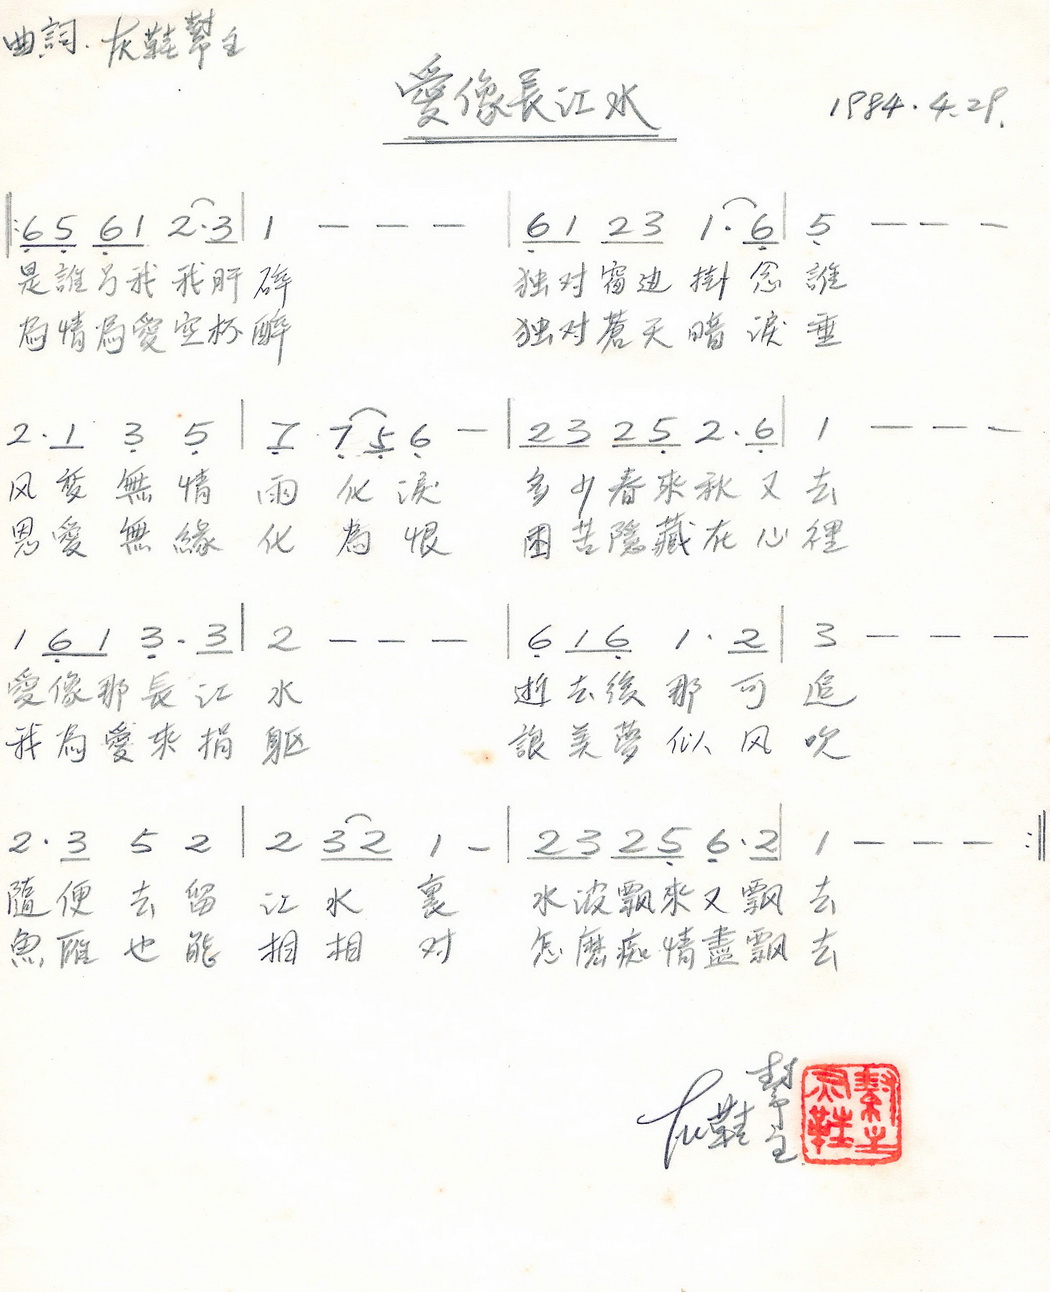 曲詞.灰鞋幫主
愛像長江水
1984.4.29.
‖:6 5 6 1 2·3 | 1 － － － | 6 1 2 3 1·6 | 5 － － －
是誰为我我肝碎 独对窗边掛念誰
為情為愛空杯醉 独对蒼天暗淚垂
2·1 3 5 | 7 7 5 6 － | 2 3 2 5 2·6 | 1 － － －
风变無情雨化淚 多少春來秋又去
恩愛無緣化為恨 困苦隐藏在心裡
1 6 1 3·3 | 2 － － － | 6 1 6 1·2 | 3 － － －
愛像那長江水 逝去後那可追
我為愛來捐躯 讓美夢似风吹
2·3 5 2 | 2 3 2 1 － | 2 3 2 5 6·2 | 1 － － － :‖
隨便去留江水裏 水波飄來又飄去
魚雁也能相相对 怎麽痴情盡飄去
灰鞋幫主
灰鞋幫主